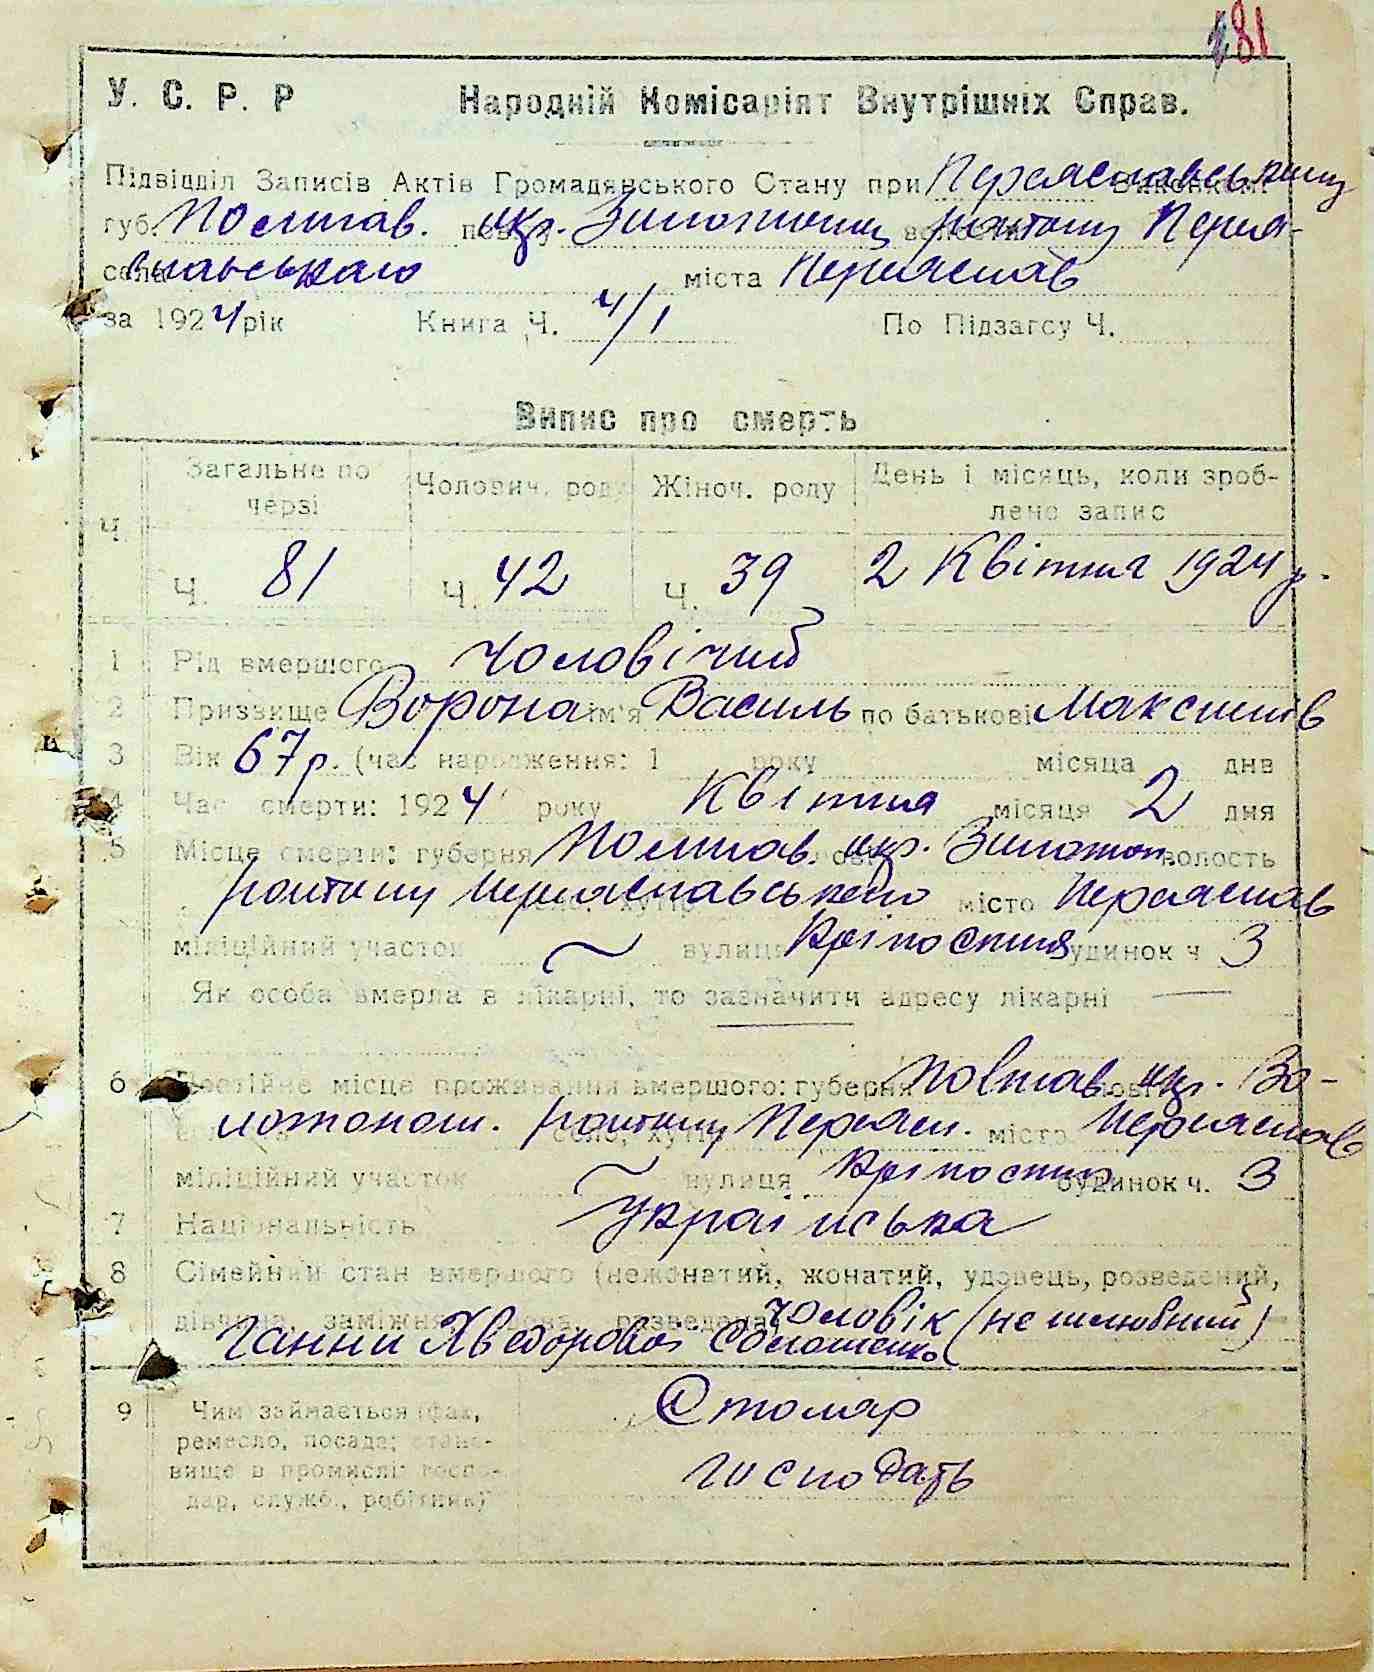 181
У. С. Р. Р Народній Комісаріят Внутрішніх Справ.
Підвідділ Записів Актів Громадянського Стану при Переяславському Виконкомі
губ. Полтав. повіту окр. Золотонош волости району Перея-
села славського міста Переяслав
за 1924 рік Книга Ч. 4/1 По Підзагсу Ч.
Випис про смерть
Ч. Загальне по черзі Чоловіч. роду Жіноч. роду День і місяць, коли зроб-
лено запис
Ч. 81 Ч. 42 Ч. 39 2 Квітня 1924 р.
1 Рід вмершого Чоловічий
2 Призвище Ворона ім'я Василь по батькові Максимів
3 Вік 67 р. (час народження: 1 року місяца днв
4 Час смерти: 1924 року Квітня місяця 2 дня
5 Місце смерти: губерня Полтав. окр. Золотон. волость
району Переяславського місто Переяслав
міліційний участок вулиця Кріпосна будинок ч 3
Як особа вмерла в лікарні, то зазначити адресу лікарні —
6 Постійне місце проживання вмершого: губерня Полтав. окр. Зо-
лотонош. село, хутір району Переясл. місто Переяслав
міліційний участок вулиця Кріпосна будинок ч. 3
7 Національність Українська
8 Сімейний стан вмершого (нежонатий, жонатий, удовець, розведений,
дівчина, заміжня, удова, розведена) Чоловік (не шлюбний)
Ганни Хведоровой
9 Чим займається (фах, Столяр
ремесло, посада; стано-
вище в промислі: госпо- господарь
дар, служб., робітник)